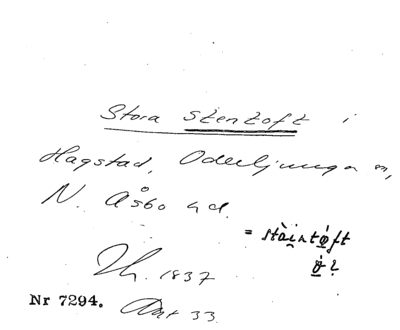 Stora stentoft i
Hagstad, Oderljunga sn,
N. Åsbo hd.
= stàintøft
ǿ?
Lh. 1837
Nr 7294. Ant 33